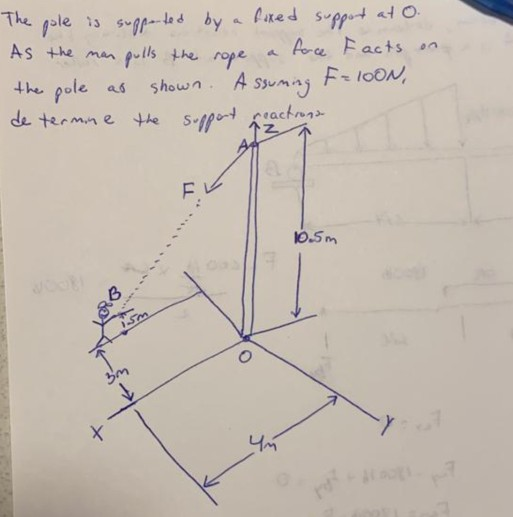 The pole is supported by a fixed support at O.
As the man pulls the rope a force F acts on
the pole as shown. Assuming F=100N,
determine the support reactions
Z
A
F
10.5m
B
1.5m
O
3m
X
Y
4m